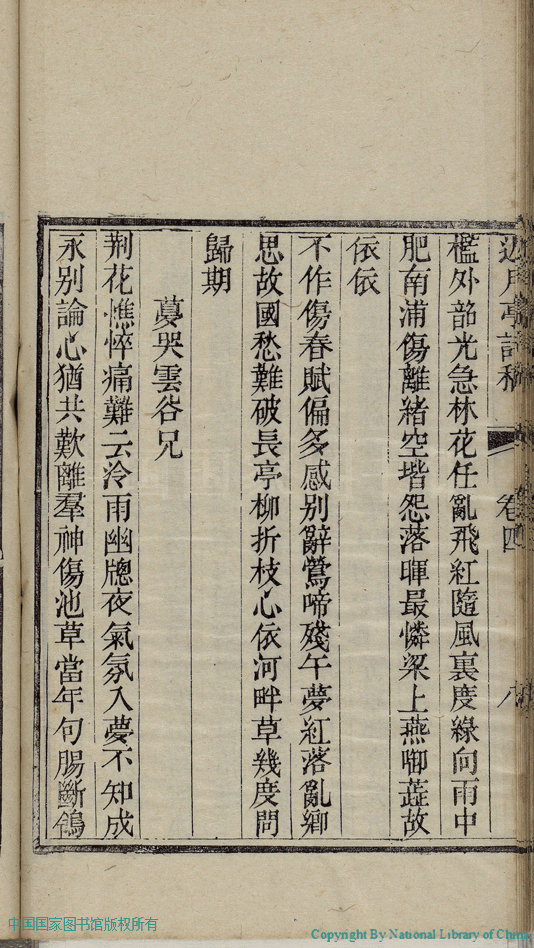 邊月亭詩稿 卷四 八
檻外韶光急林花任亂飛紅隨風裏度綠向雨中
肥南浦傷離緒空堦怨落暉最憐梁上燕啣蕋故
依依
不作傷春賦偏多感別辭鶯啼殘午夢紅落亂鄉
思故國愁難破長亭柳折枝心依河畔草幾度問
歸期
夢哭雲谷兄
荆花憔悴痛難云冷雨幽牕夜氣氛入夢不知成
永别論心猶共歎離羣神傷池草當年句腸斷鴒
中国国家图书馆版权所有
Copyright By National Library of China